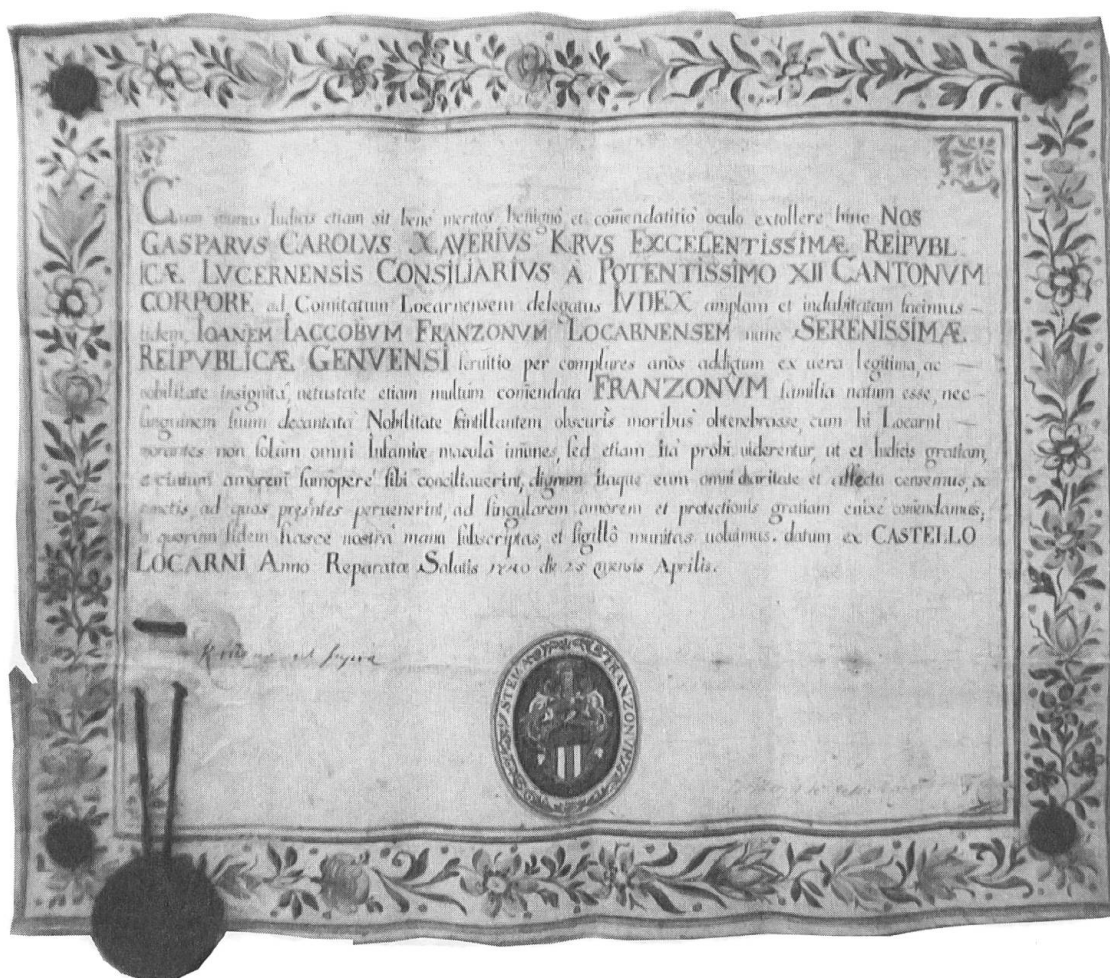 Cum munus Iudicis etiam sit bene meritos benigno et comendatitio oculo extollere hinc NOS
GASPARVS CAROLVS XAVERIVS KRVS EXCELENTISSIMÆ REIPVBL
ICÆ LVCERNENSIS CONSILIARIVS A POTENTISSIMO XII CANTONVM
CORPORE ad Comitatum Locarnensem delegatus IVDEX amplam et indubitatam facimus
fidem IOANEM IACCOBVM FRANZONVM LOCARNENSEM nunc SERENISSIMÆ
REIPVBLICÆ GENVENSI seruitio per complures anos addictum ex uera legitima, ac
nobilitate insignita, uetustate etiam multum comendata FRANZONVM familia natum esse, nec
sanguinem suum decantata Nobilitate sintillantem obscuris moribus obtenebrasse, cum hi Locarni
morantes non solum omni Infamiæ maculâ imunes, sed etiam ita probi uiderentur, ut et Iudicis gratiam,
amorem sumopere sibi conciliauerint, dignum itaque eum omni charitate et affectu censemus, ac
cunctis, ad quos presentes peruenerint, ad singularem amorem et protectionis gratiam enixe comendamus,
In quorum fidem hasce nostra manu subscriptas, et sigillô munitas uoluimus. datum ex CASTELLO
LOCARNI Anno Reparatæ Salutis 1740 die 25 mensis Aprilis.
STEM FRANZONVM